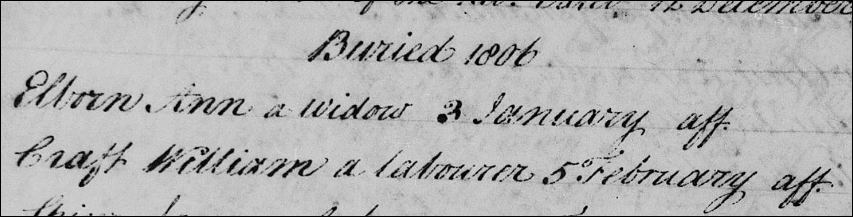 12 December
Buried 1806
Elborn Ann a widow 3 January aff.
Craft William a labourer 5 February aff.